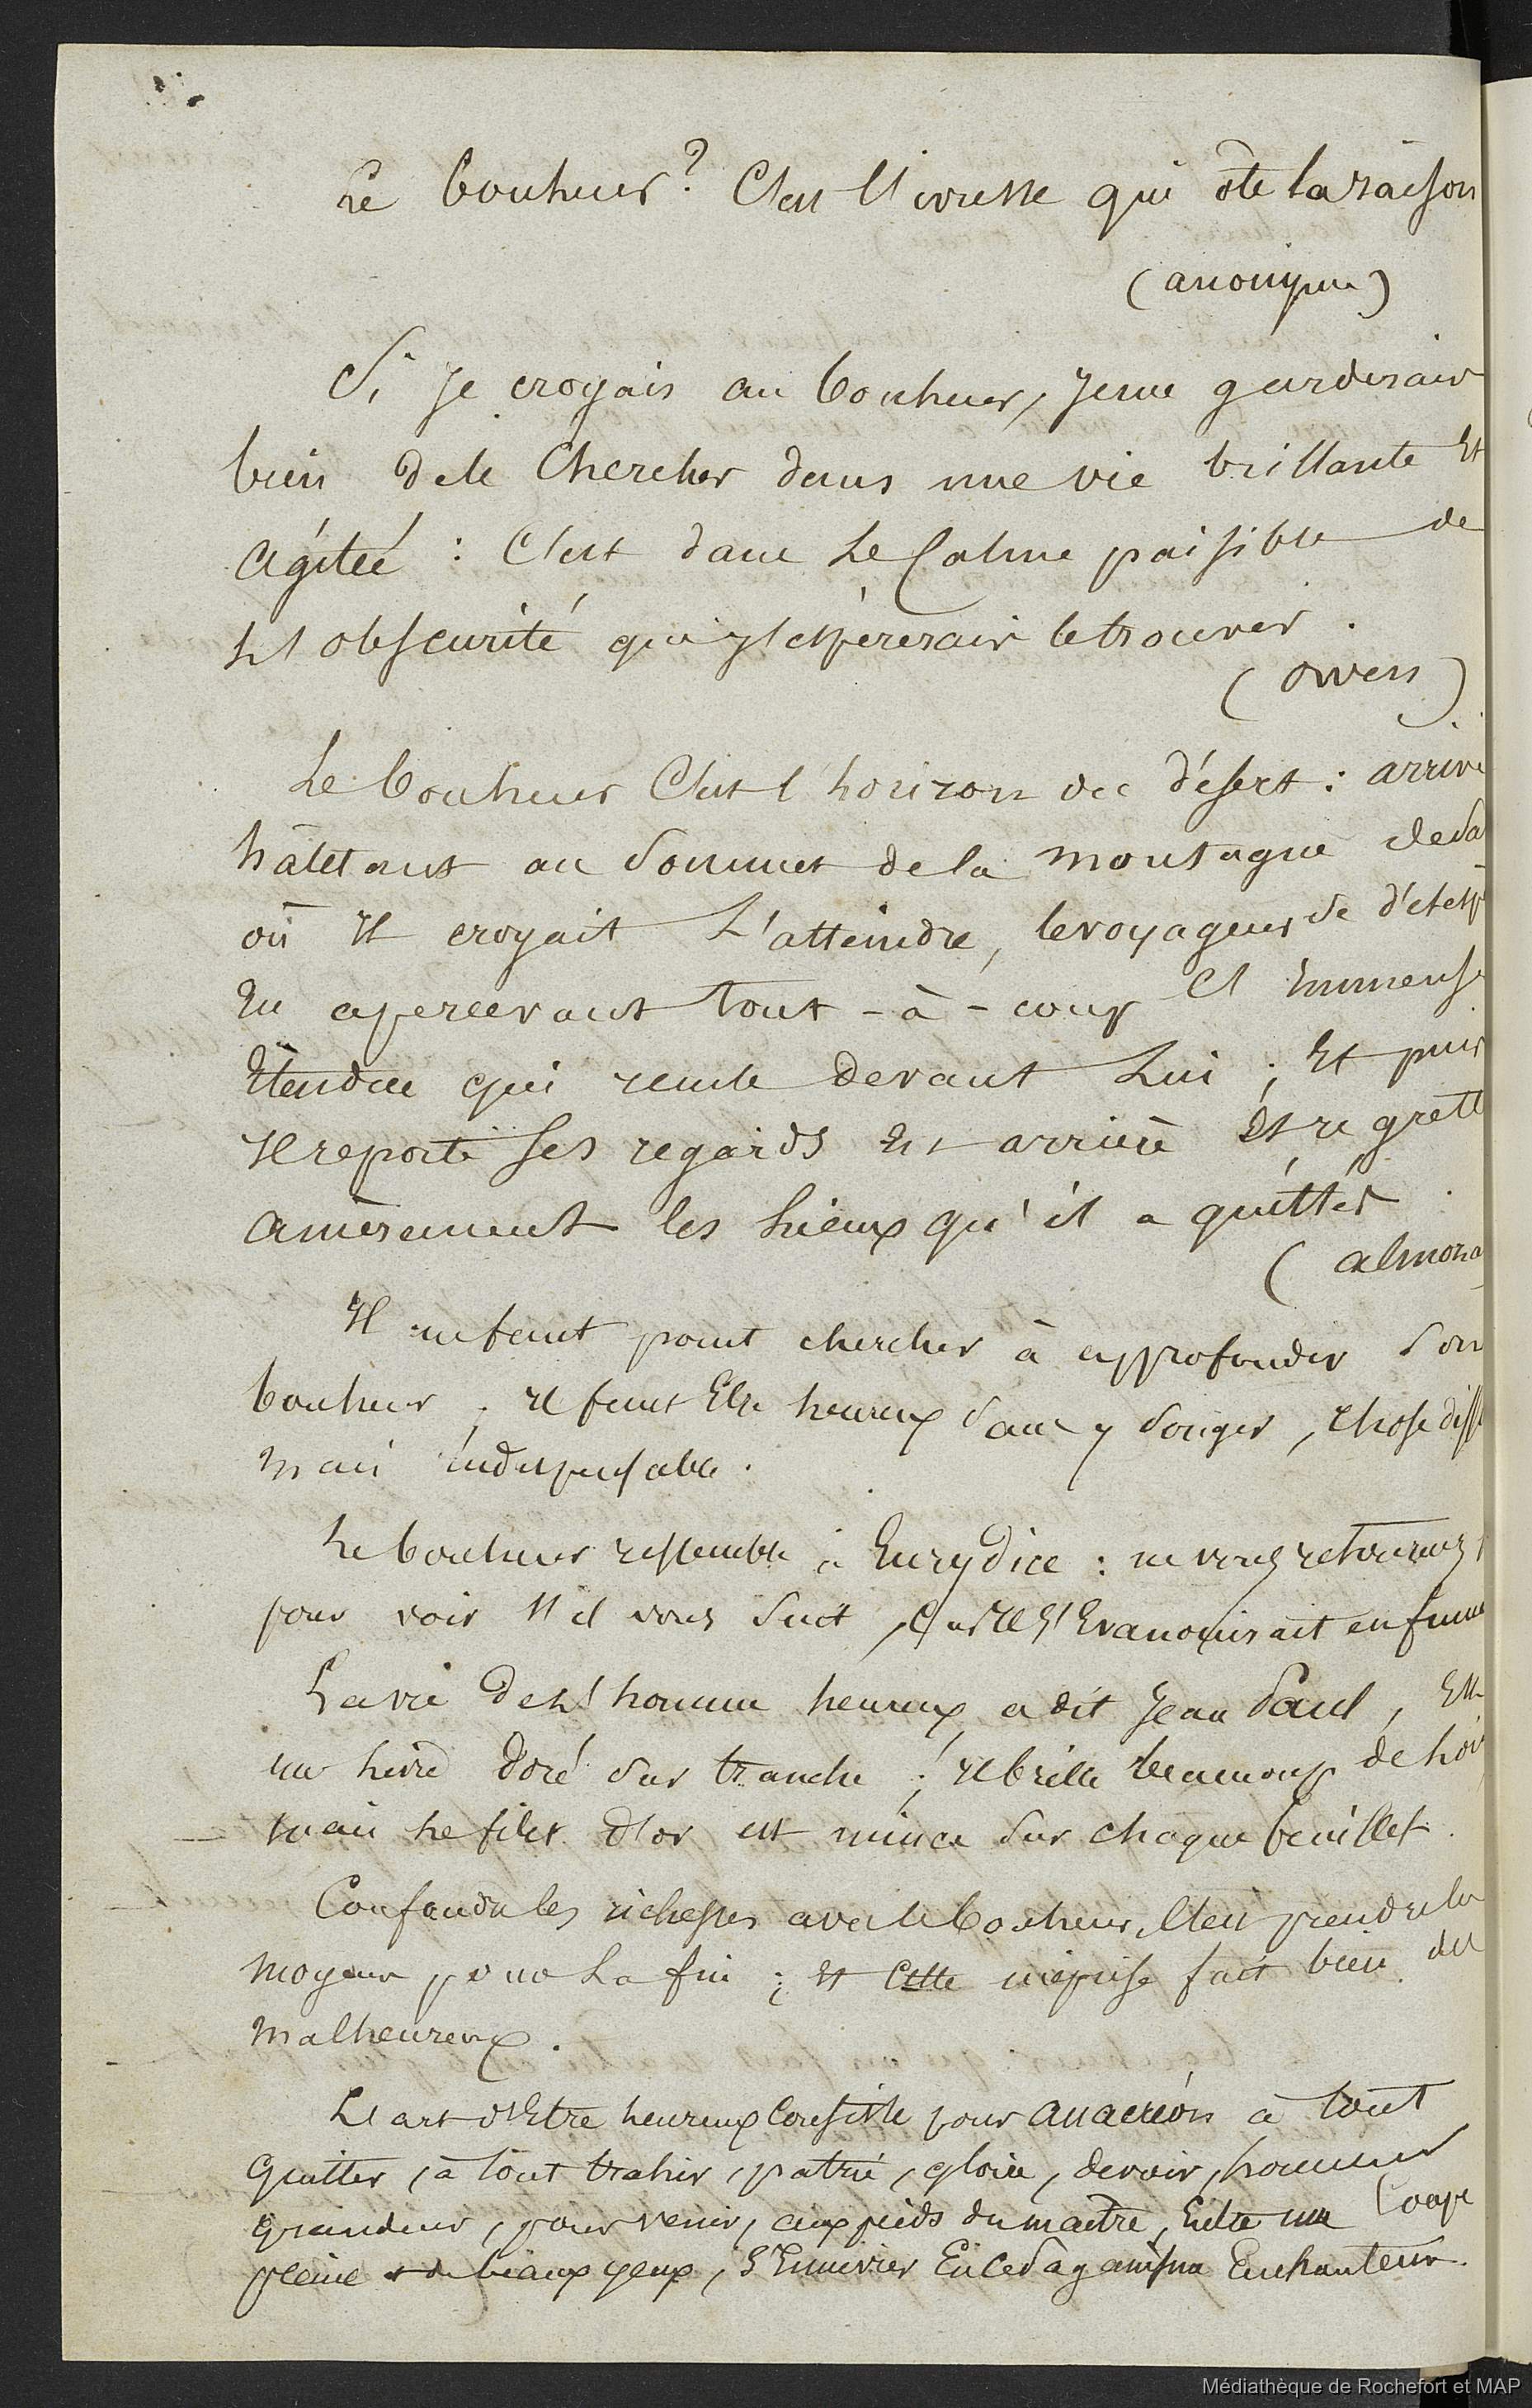 Le bonheur? C'est l'ivresse qui ôte la raison
(anonyme)
Si je croyais au bonheur, je me garderais
bien de le Chercher dans une vie brillante Et
Agitée : C'est dans Le Calme paisible de
L'obscurité que j'espèrerais le trouver.
(Owen)
Le bonheur C'est l'horizon du désert : arrivé
hâletant au Sommet de la montagne de sa
où Il croyait L'atteindre, le voyageur se désesp
En apercevant tout-à-coup L'Immense
Etendue qui reste devant Lui ; Et puis
Il reporte ses regards En arrière Et regrett
Amèrement les Lieux qu'il a quittés
(almona
Il ne faut point chercher à approfondir Son
bonheur ; Il faut Etre heureux Sans y Songer, Chose diffi
mais indispensable.
Le bonheur ressemble à Eurydice : ne vous retournez p
pour voir s'il vous Suit, Car Il s'Evanouirait en fumé
La vie de L'homme heureux a dit Jean Paul, Est
un Livre Doré Sur tranche ; Il brille beaucoup dehors
mais Le filet d'or est mince Sur chaque feuillet.
Confondre les richesses avec le bonheur, C'est prendre les
moyens pour La fin ; Et Cette méprise fait bien des
malheureux.
L'art d'Etre heureux Consiste pour Anacréon à tout
Quitter, à tout trahir, patrie, gloire, devoir, honneur
Grandeur, pour venir, aux pieds du maître, Entre une Coupe
pleine & de beaux yeux, S'Ennivrer En Ce Paganisme Enchanteur.
Médiathèque de Rochefort et MAP